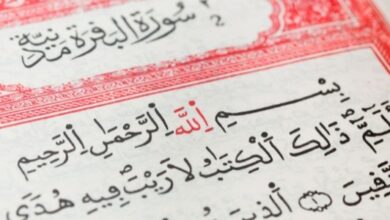 سُورَةُ البَقَرَةِ مَدَنِيَّةٌ
2
بِسْمِ اللَّهِ الرَّحْمَٰنِ الرَّحِيمِ
الٓمٓ ذَٰلِكَ الْكِتَٰبُ لَا رَيْبَ فِيهِ هُدًى
الَّذِينَ